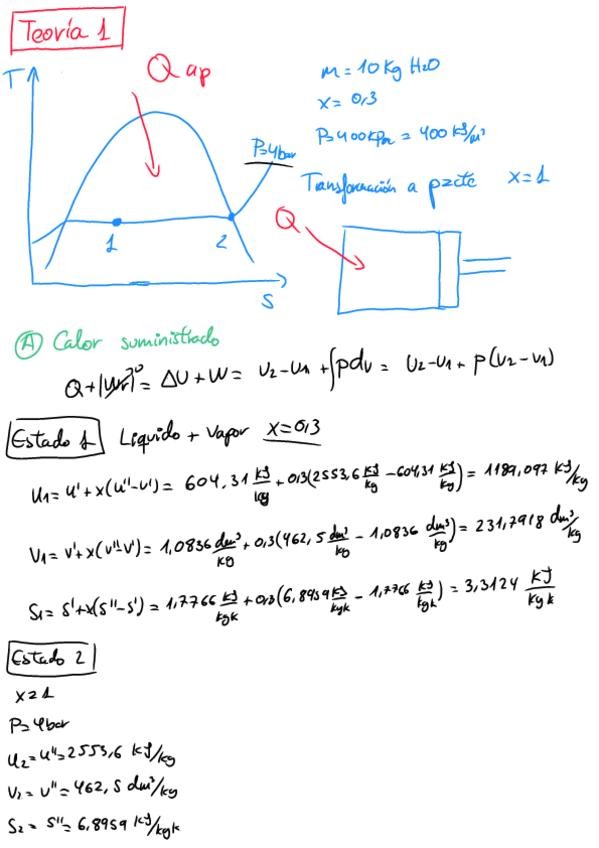 Teoría 1
T
Q ap
P=4bar
1
2
S
m = 10 Kg H2O
x = 0,3
P=400KPa = 400 KJ/m³
Transformación a p=cte x = 1
Q
A Calor suministrado
Q + |Wr|⁰ = ΔU + W = U2 - U1 + ∫pdv = U2 - U1 + p(V2 - V1)
Estado 1 Líquido + Vapor x=0,3
U1 = U' + x(U''-U') = 604,31 KJ/Kg + 0,3(2553,6 KJ/kg - 604,31 KJ/kg) = 1189,097 KJ/kg
V1 = V' + x(V''-V') = 1,0836 dm³/kg + 0,3(462,5 dm³/kg - 1,0836 dm³/kg) = 231,7918 dm³/kg
S1 = S' + x(S''-S') = 1,7766 KJ/kgK + 0,3(6,8959 KJ/kgK - 1,7766 KJ/kgK) = 3,3124 KJ/kgK
Estado 2
x=1
P=4bar
U2 = U''= 2553,6 KJ/kg
V2 = V'' = 462,5 dm³/kg
S2 = S''= 6,8959 KJ/kgK